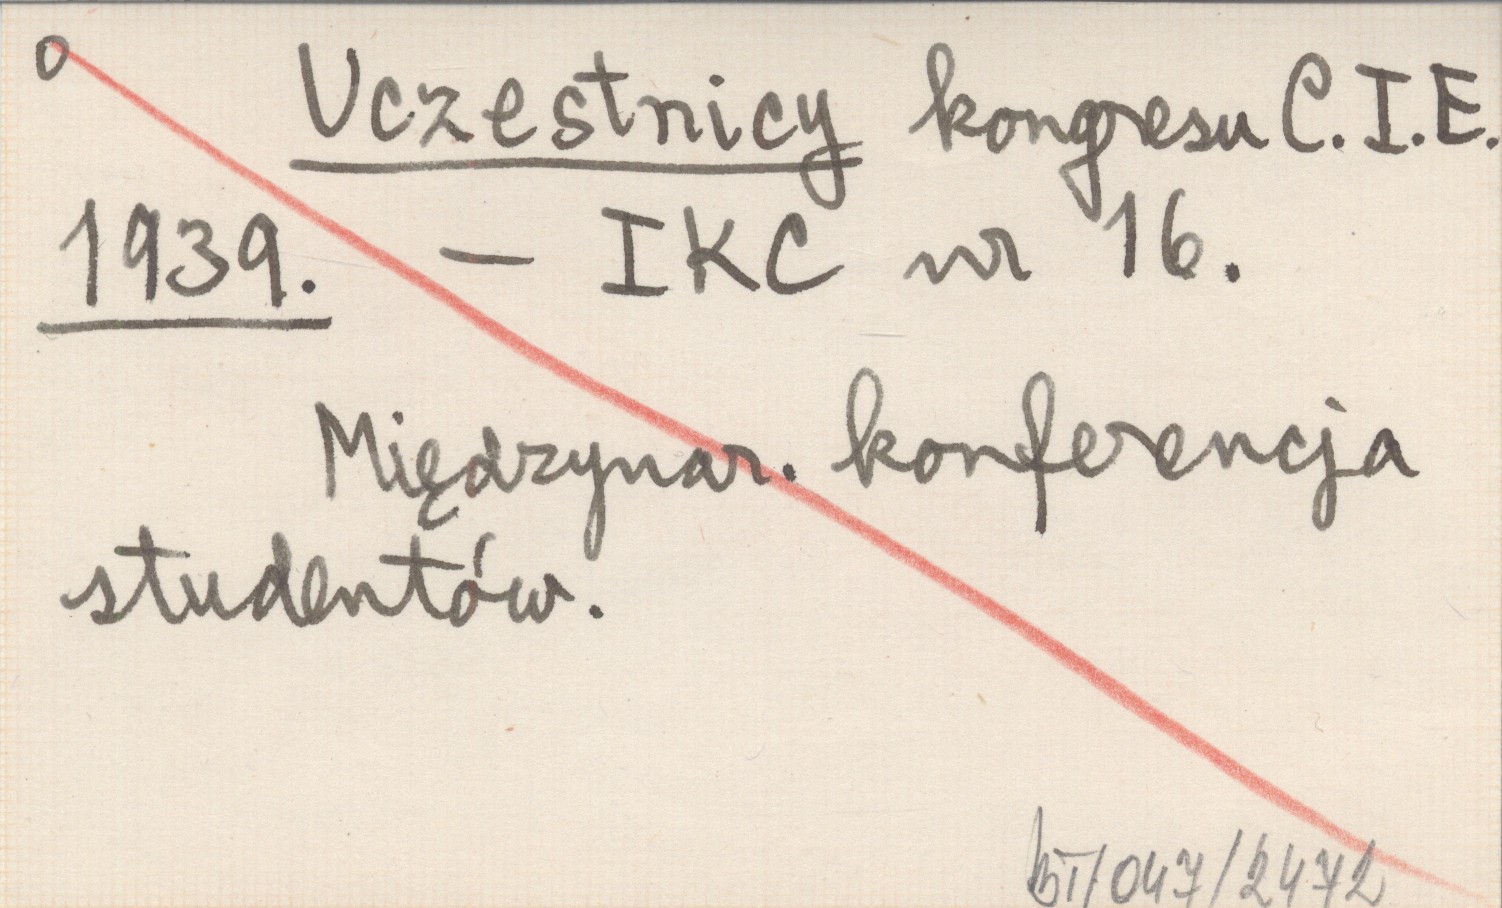 o Uczestnicy kongresu C.I.E.
1939. – IKC nr 16.
Międzynar. konferencja
studentów.
/047/2472